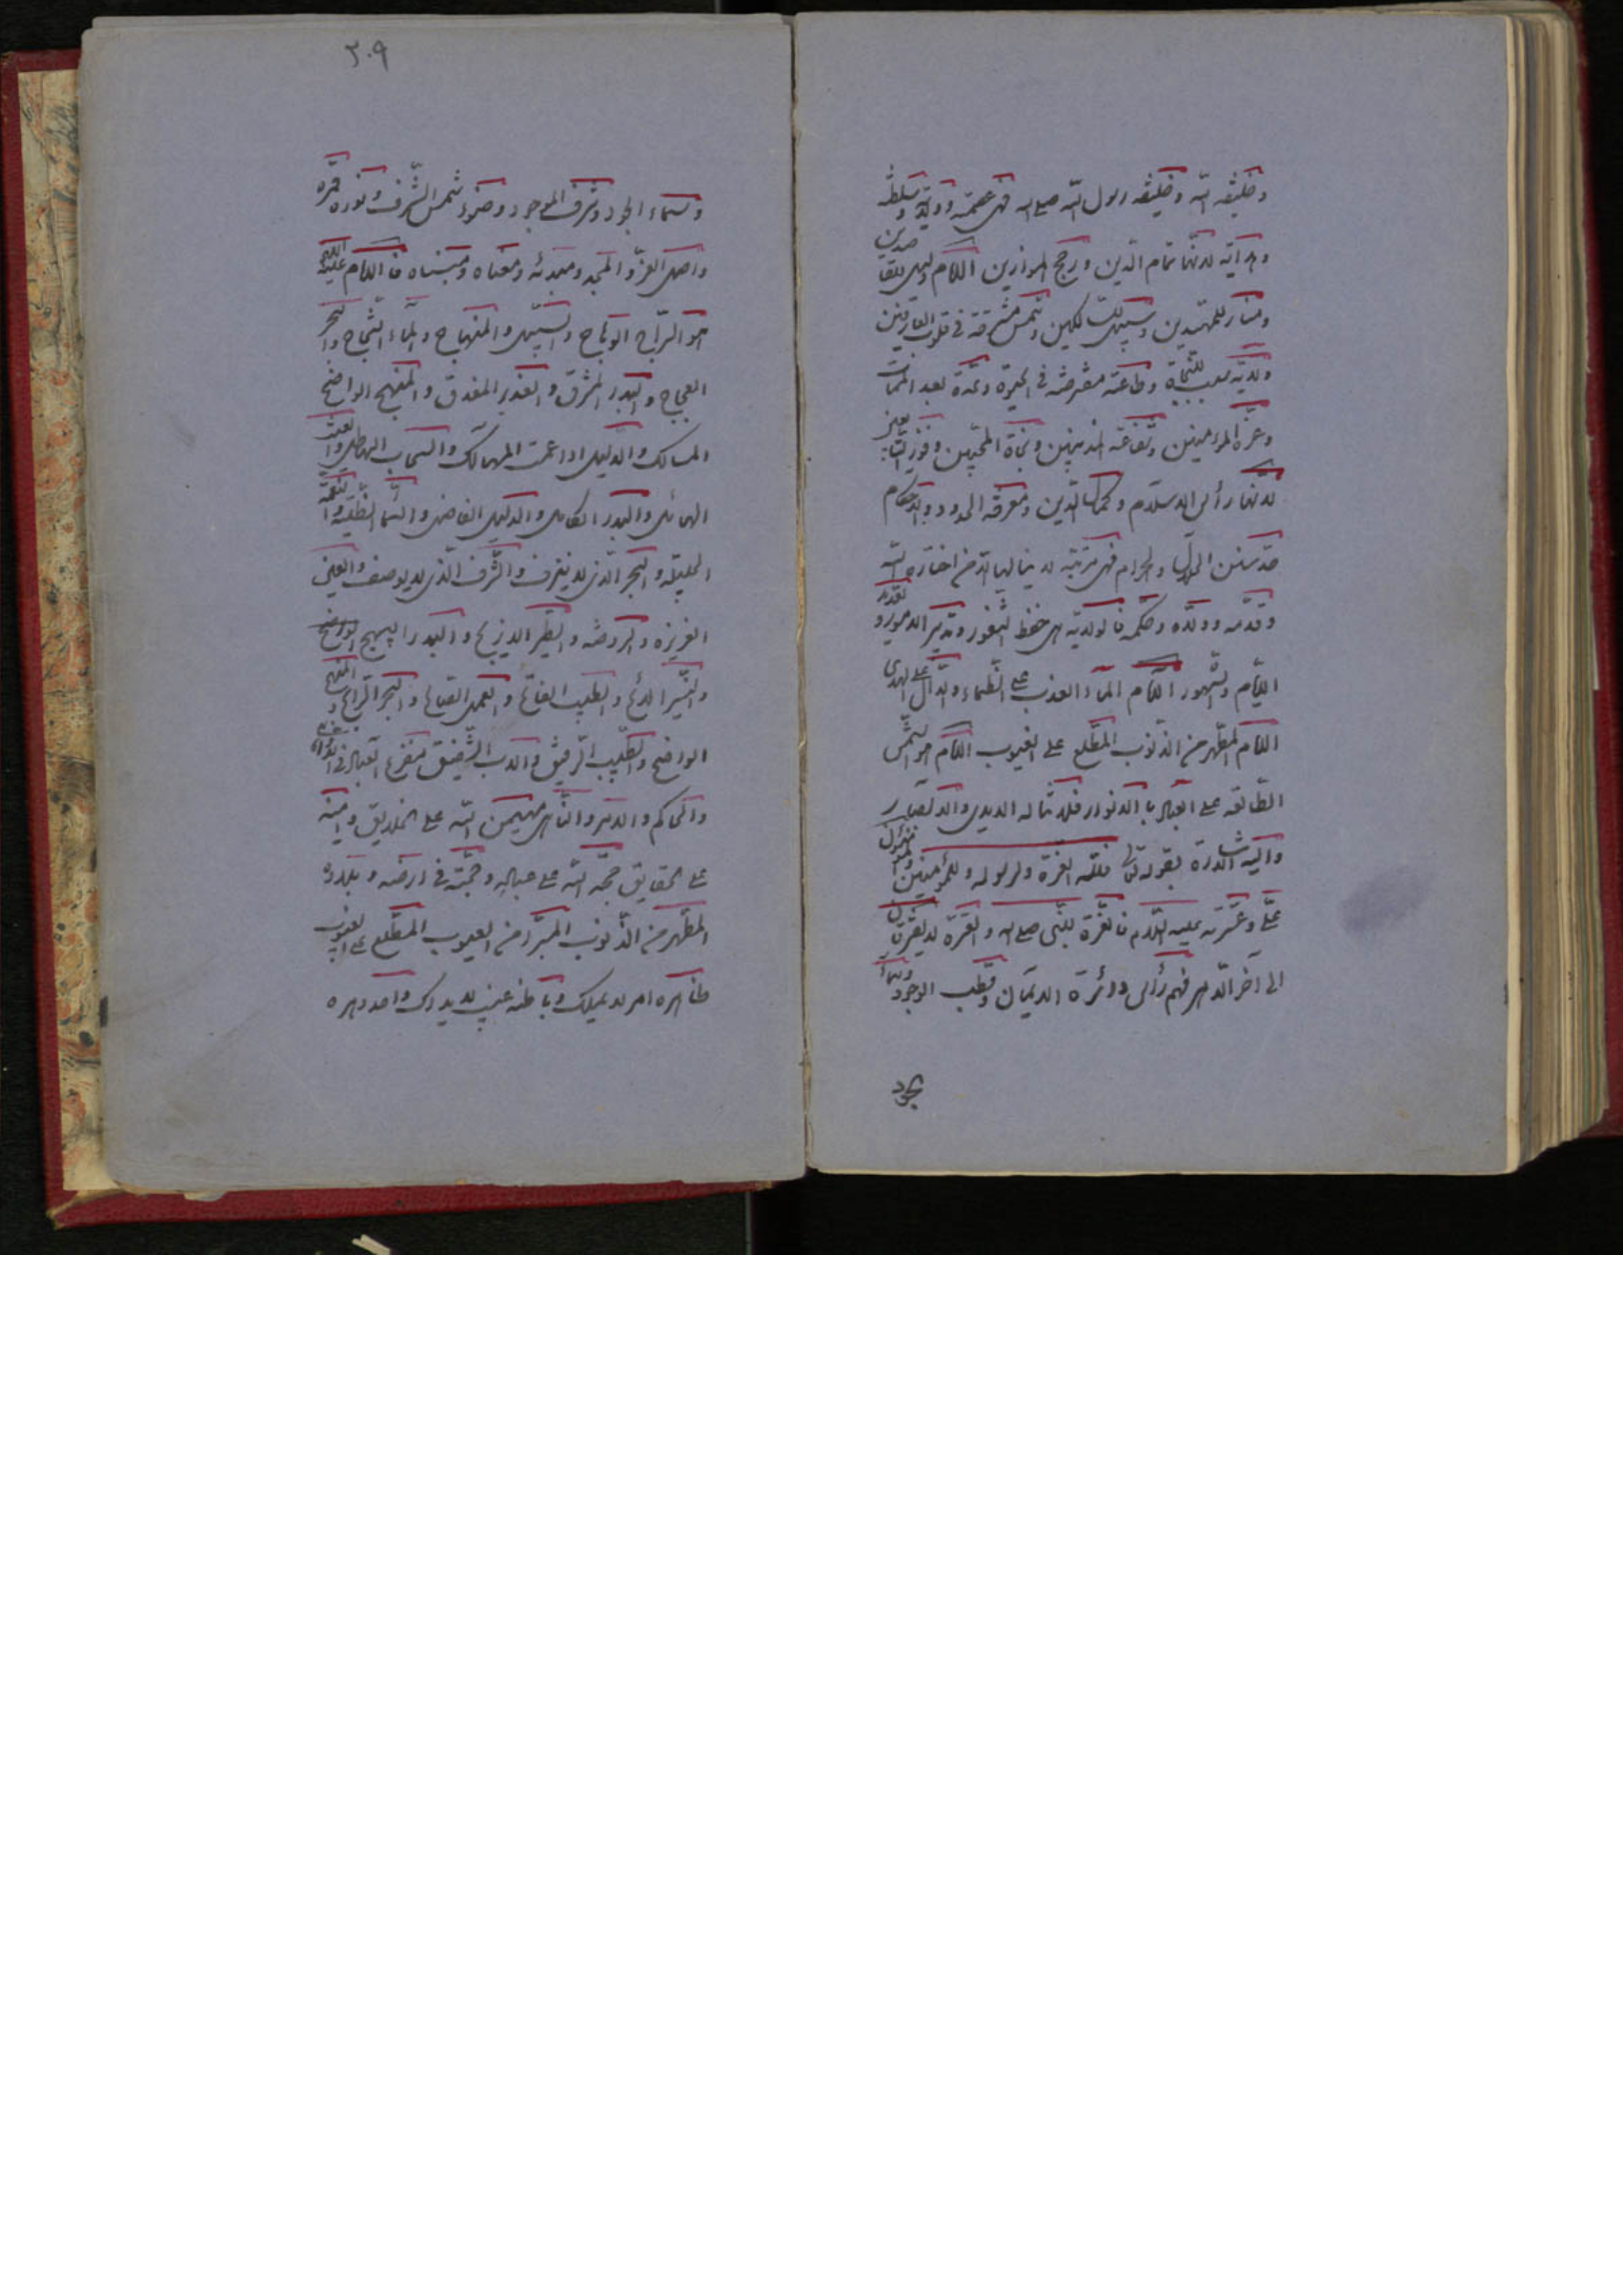 وخليفة الله وخليفة رسول الله صلى الله فهي عصمة وولاية وسلطنة
وهداية لانها تمام الدين ورجح الموازين الامام دليل للقاصدين
ومنار للمهتدين وسبيل للسالكين وشمس مشرقة في قلوب العارفين
ولايته سبب للنجاة وطاعته مفترضة في الحيوة وعدة بعد الممات
وعز المؤمنين وشفاعة المذنبين ونجاة المحبين وفوز التابعين
لانها رأس الاسلام وكمال الدين ومعرفة الحدود والاحكام
الحلال والحرام فهي مرتبة لا ينالها الا من اختاره الله
وقدمه وولاه وحكمه فالولاية هي حفظ الثغور وتدبير الامور و
الايام والشهور الامام الماء العذب على الظماء والدال على الهدى
الامام المطهر من الذنوب المطلع على الغيوب الامام هو الشمس
الطالعة على العباد بالانوار فلا تناله الايدي والابصار
واليه الاشارة بقوله تعالى فلله العزة ولرسوله وللمؤمنين والمؤمنون
علي وعترته عليه السلام فالعزة للنبي صلى الله والعترة لا يفترقان
الى آخر الدهر فهم رأس دائرة الايمان وقطب الوجود وسماء
الجود
٣٠٩
وسماء الجود وشرف الموجود وضوء شمس الشرف ونور قمره
واصل العز والمجد ومبدئه ومعناه ومبناه فالامام عليه السلام
هو السراج الوهاج والسبيل والمنهاج والماء الثجاج والبحر
العجاج والبدر المشرق والغدير المغدق والمنهج الواضح
المسالك والدليل اذا عمت المهالك والسحاب الهاطل والغيث
الهائل والبدر الكامل والدليل الفاضل والسماء الظليلة والنعمة
الجليلة والبحر الذي لا ينزف والشرف الذي لا يوصف والعين
الغزيرة والروضة والبدر البهيج الواضح
والنير اللائح والطيب الفائح والعمل الصالح والمتجر الرابح والمنهج
الواضح والطبيب الرفيق والاب الشفيق مفزع العباد في الدواهي
والحاكم والآمر والناهي مهيمن الله على الخلايق وامينه
على الحقايق حجة الله على عباده ومحجته في ارضه وبلاده
المطهر من الذنوب المبرأ من العيوب المطلع على الغيوب
ظاهره امر لا يملك وباطنه غيب لا يدرك واحد دهره